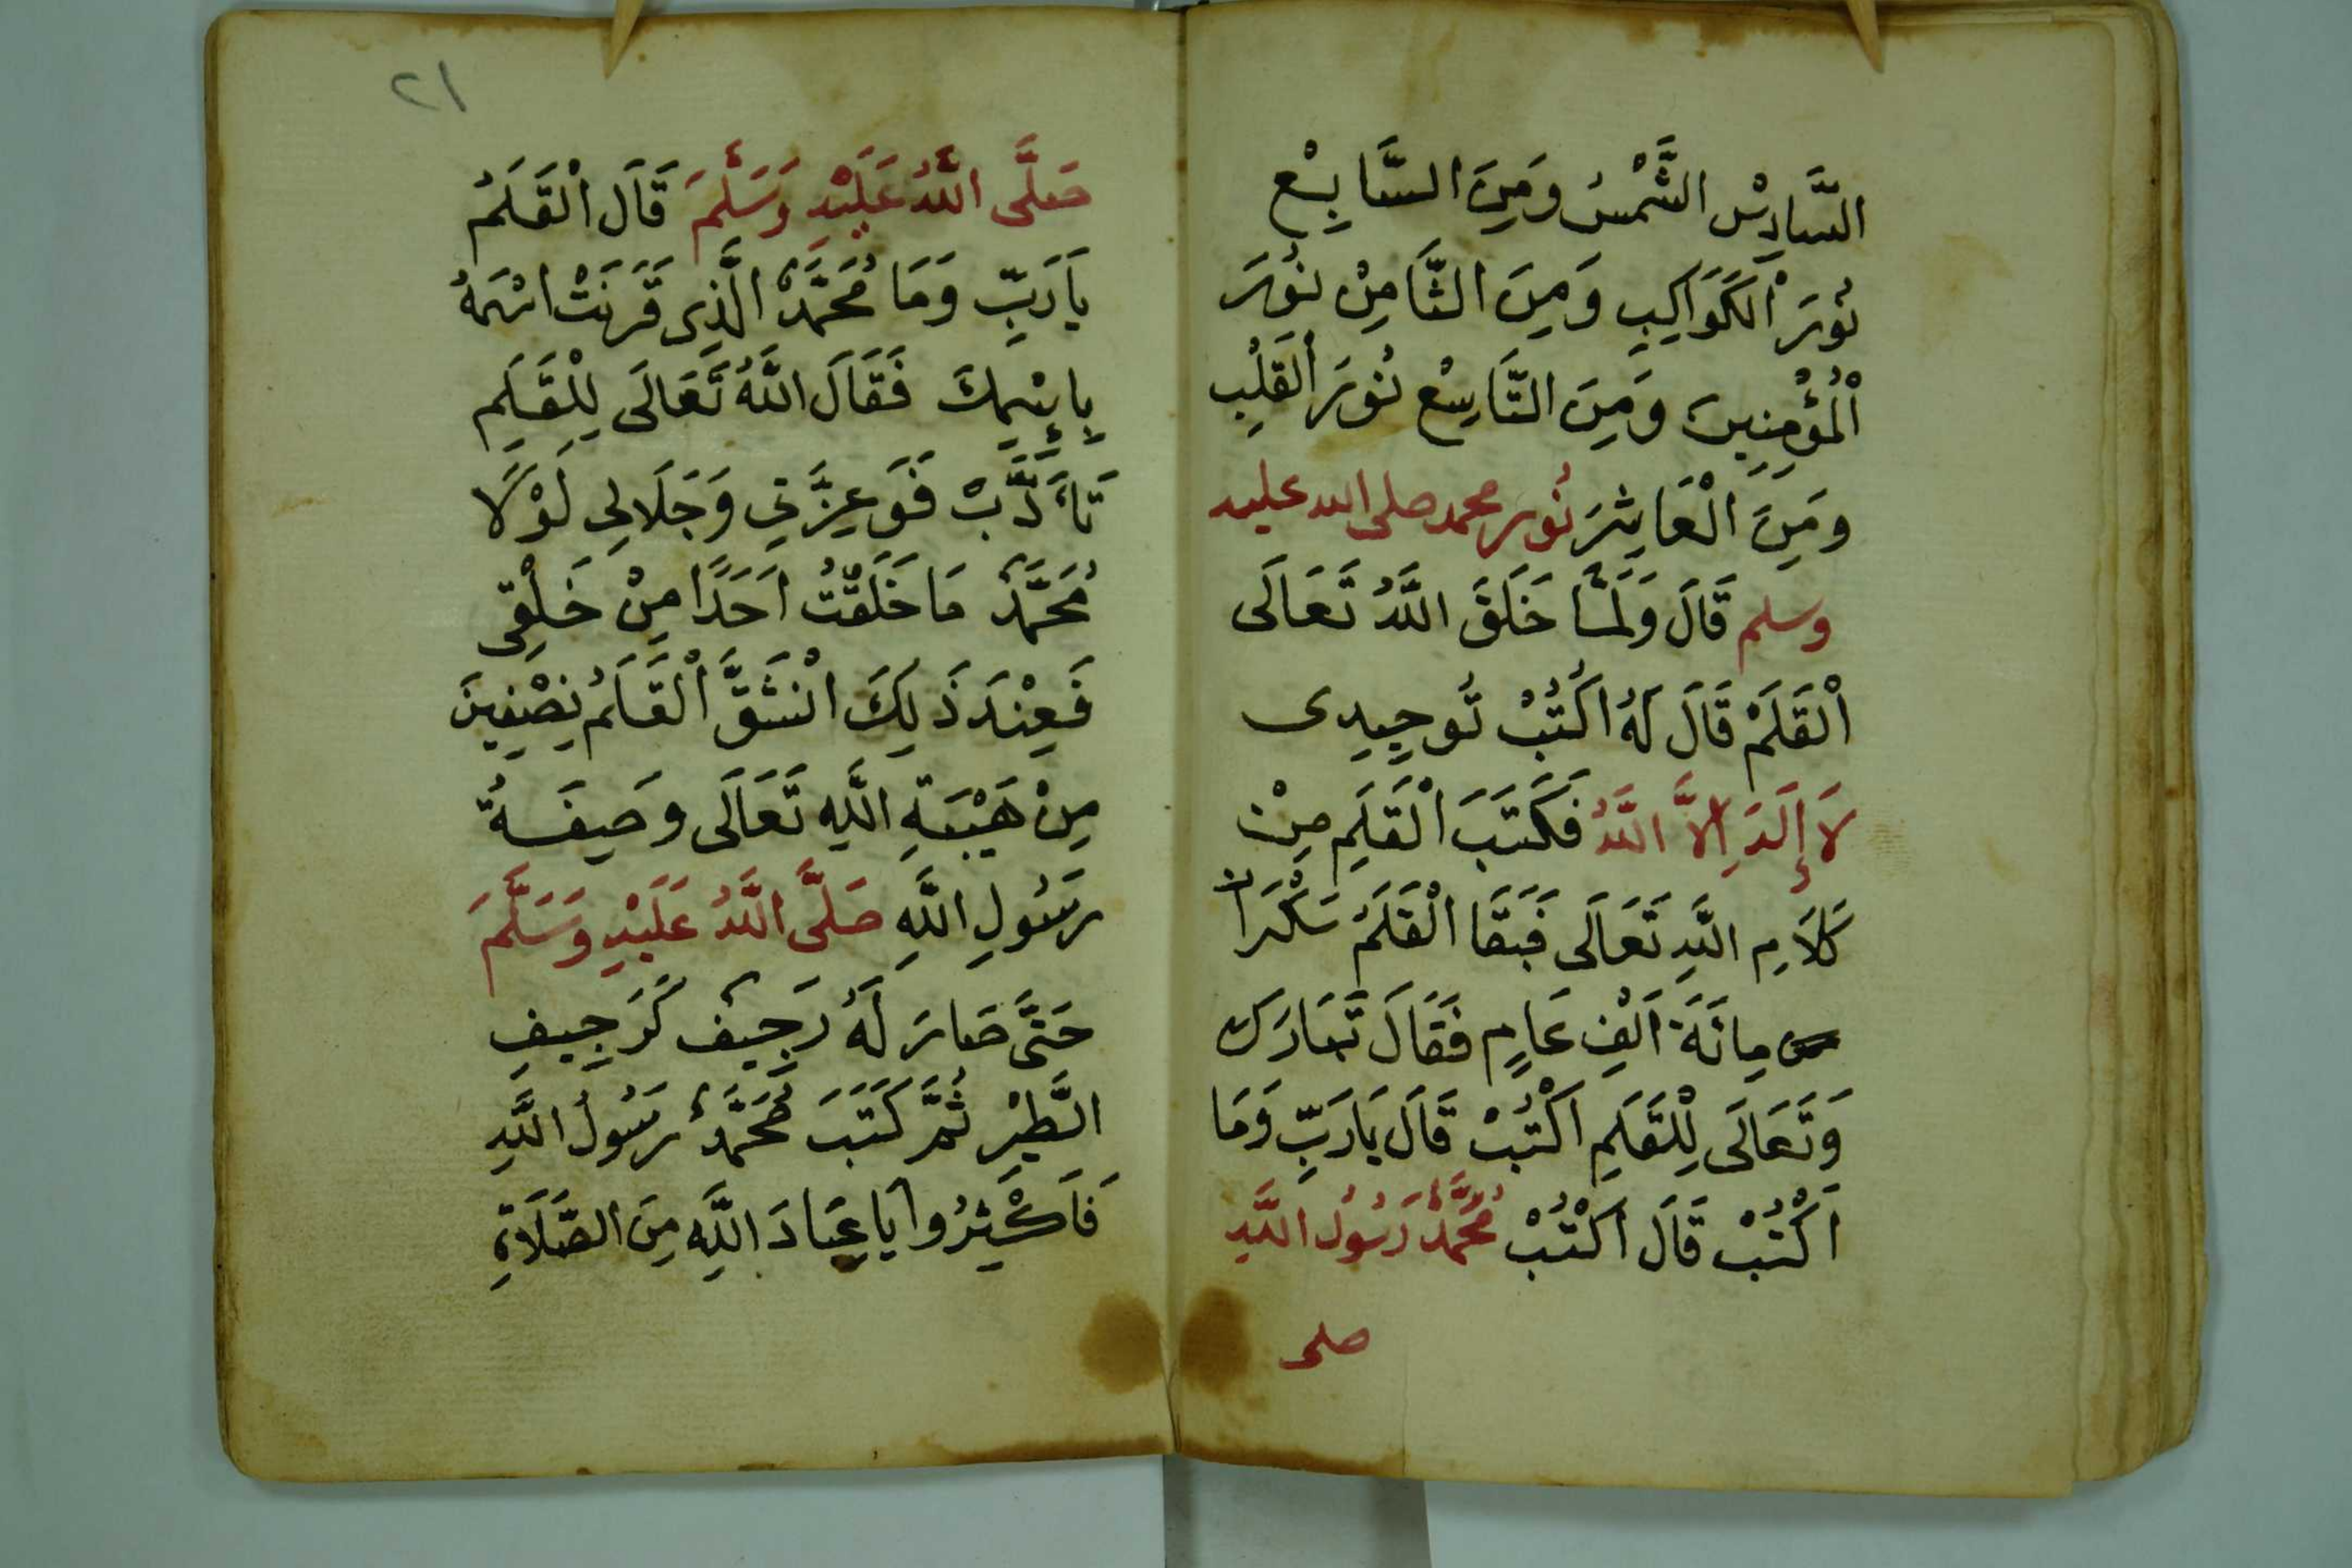 السَّادِسْ الشَّمْسُ وَمِنَ السَّابِعْ
نُورَ الْكَوَاكِبِ وَمِنَ الثَّامِنْ نُورَ
الْمُؤْمِنِينَ وَمِنَ التَّاسِعْ نُورَ الْقَلْبِ
وَمِنَ الْعَاشِرَ نُور محمد صلى الله عليه
وسلم قَالَ وَلَمَّا خَلَقَ اللَّهُ تَعَالَى
الْقَلَمْ قَالَ لَهُ اكْتُبْ تُوحِيدِى
لَا إِلَهَ إِلَّا اللَّهُ فَكَتَبَ الْقَلَمِ مِنْ
كَلَامِ اللَّهِ تَعَالَى فَبَقَا الْقَلَمُ سَكْرَانْ
مِائَةَ اَلْفِ عَامٍ فَقَالَ تَبَارَكَ
وَتَعَالَى لِلْقَلَمِ اكْتُبْ قَالَ يَارَبِّ وَمَا
اَكْتُبْ قَالَ اكْتُبْ مُحَمَّدٌ رَسُولُ اللَّهِ
صلى
٢١
صَلَّى اللَّهُ عَلَيْهِ وَسَلَّمَ قَالَ الْقَلَمُ
يَارَبِّ وَمَا مُحَمَّدٌ الَّذِى قَرَنَتْ اسْمَهُ
بِإِسْمِكَ فَقَالَ اللَّهُ تَعَالَى لِلْقَلَمِ
تَأَدَّبْ فَوَعِزَّتِي وَجَلَالِي لَوْلَا
مُحَمَّدٌ مَا خَلَقْتُ اَحَدًا مِنْ خَلْقِى
فَعِنْدَ ذَلِكَ انْشَقَّ الْقَلَمُ نِصْفِينَ
مِنْ هَيْبَةِ اللَّهِ تَعَالَى وَصِيفَةُ
رَسُولِ اللَّهِ صَلَّى اللَّهُ عَلَيْهِ وَسَلَّمَ
حَتَّى صَارَ لَهُ رَجِيفٌ كَرَجِيفِ
الطَّيْرِ ثُمَّ كَتَبَ مُحَمَّدٌ رَسُولُ اللَّهِ
فَأَكْثِرُوا يَاعِبَادَ اللَّهِ مِنَ الصَّلَاةِ